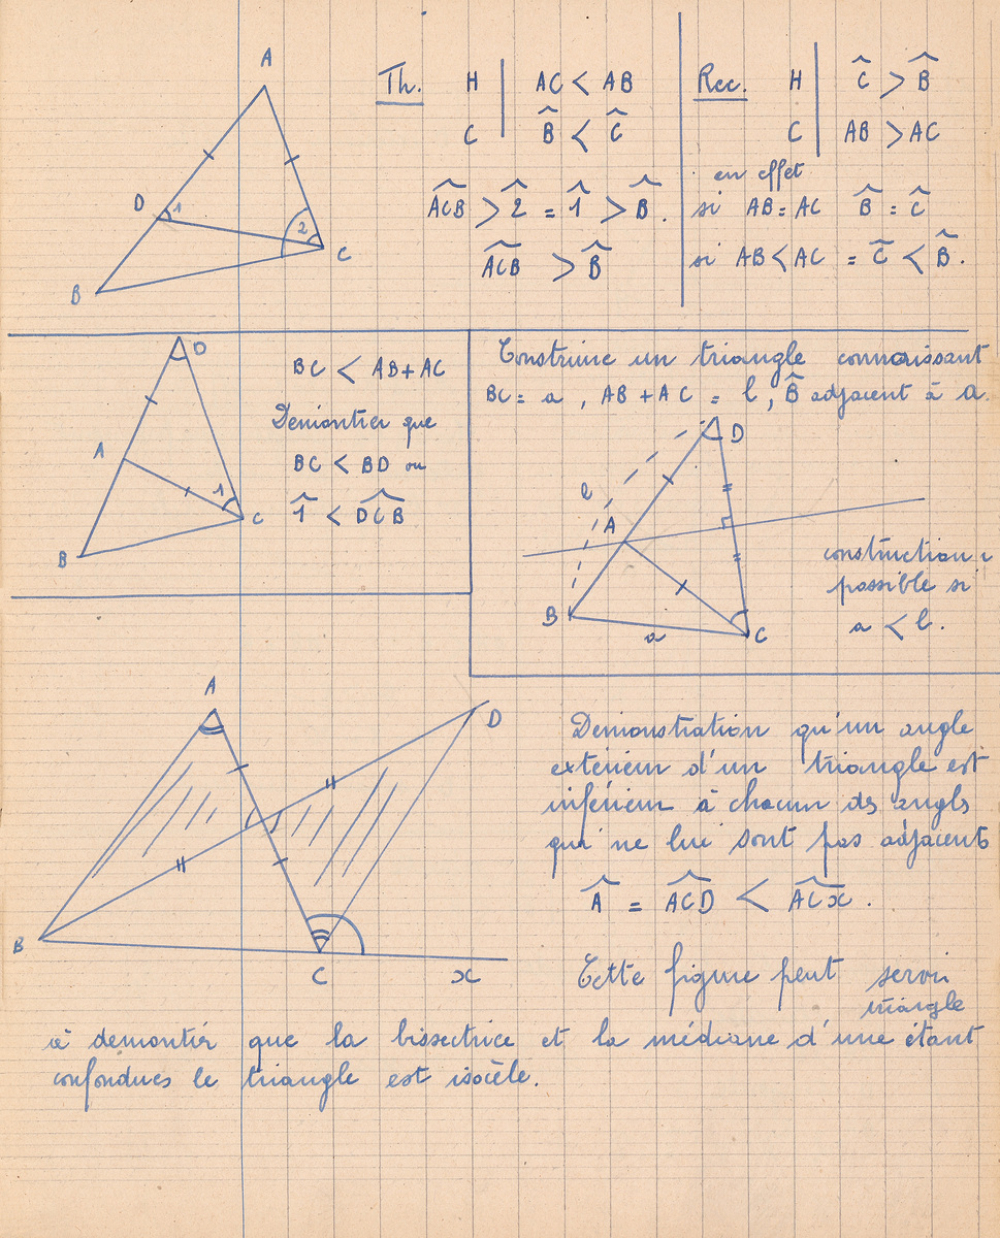 A
D
1
2
C
B
Th. H | AC < AB
C | B̂ < Ĉ
ACB̂ > 2̂ = 1̂ > B̂.
ACB̂ > B̂
Rec. H | Ĉ > B̂
C | AB > AC
en effet
si AB = AC B̂ = Ĉ
si AB < AC = Ĉ < B̂.
D
A
1
C
B
BC < AB + AC
Demontrer que
BC < BD ou
1̂ < DCB̂
Construire un triangle connaissant
BC = a, AB + AC = l, B̂ adjacent à a.
D
l
A
B
a
C
construction
possible si
a < l.
A
D
B
C
x
Demonstration qu'un angle
exterieur d'un triangle est
inferieur à chacun des angls
qui ne lui sont pas adjacents
Â = ACD̂ < ACx̂.
Cette figure peut servir
triangle
à demontrer que la bissectrice et la médiane d'une étant
confondues le triangle est isocèle.